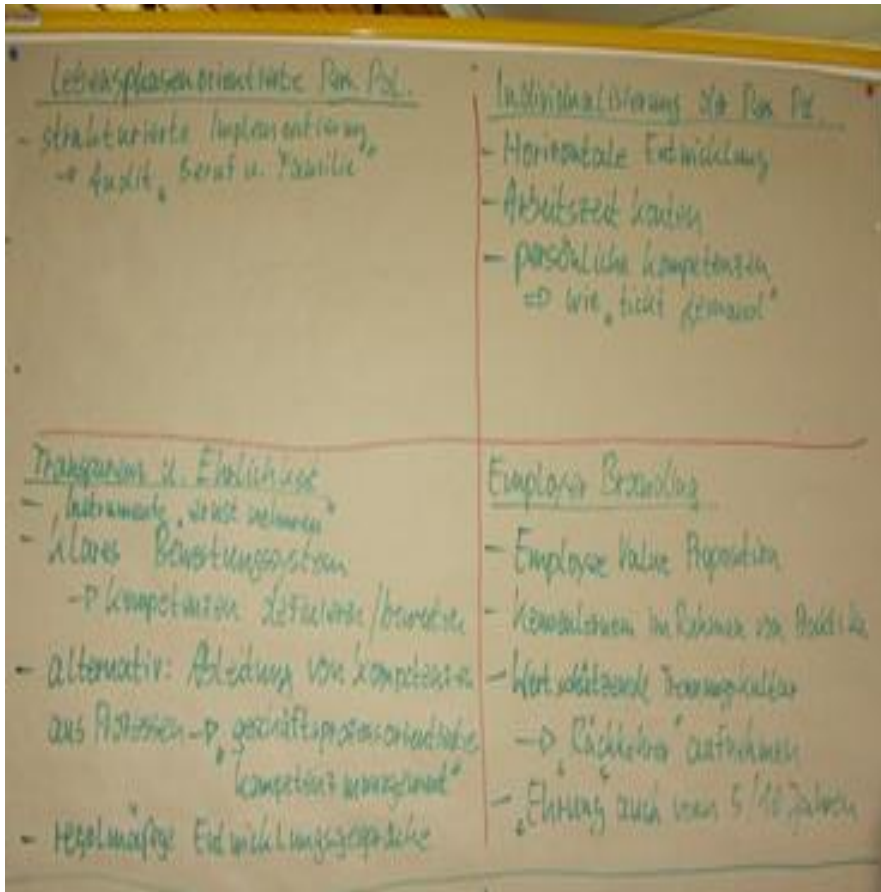 Lebensphasenorientierte Pers. Pol.
- strukturierte Implementierung
→ Audit „Beruf u. Familie“
Individualisierung der Pers. Pol.
- Horizontale Entwicklung
- Arbeitszeit konten
- persönliche Kompetenzen
⇒ wie „tickt jemand“
Transparenz u. Ehrlichkeit
- Instrumente „ernst nehmen“
- klares Bewertungssystem
→ Kompetenzen definieren/bewerten
- alternativ: Ableitung von Kompetenzen
aus Prozessen → „geschäftsprozessorientiertes
Kompetenzmanagement“
- regelmäßige Entwicklungsgespräche
Employer Branding
- Employee Value Proposition
- Kennenlernen im Rahmen von
- Wertschätzende Trennungskultur
→ „Rückkehrer“ aufnehmen
- „Ehrung“ auch von 5/10 Jahren